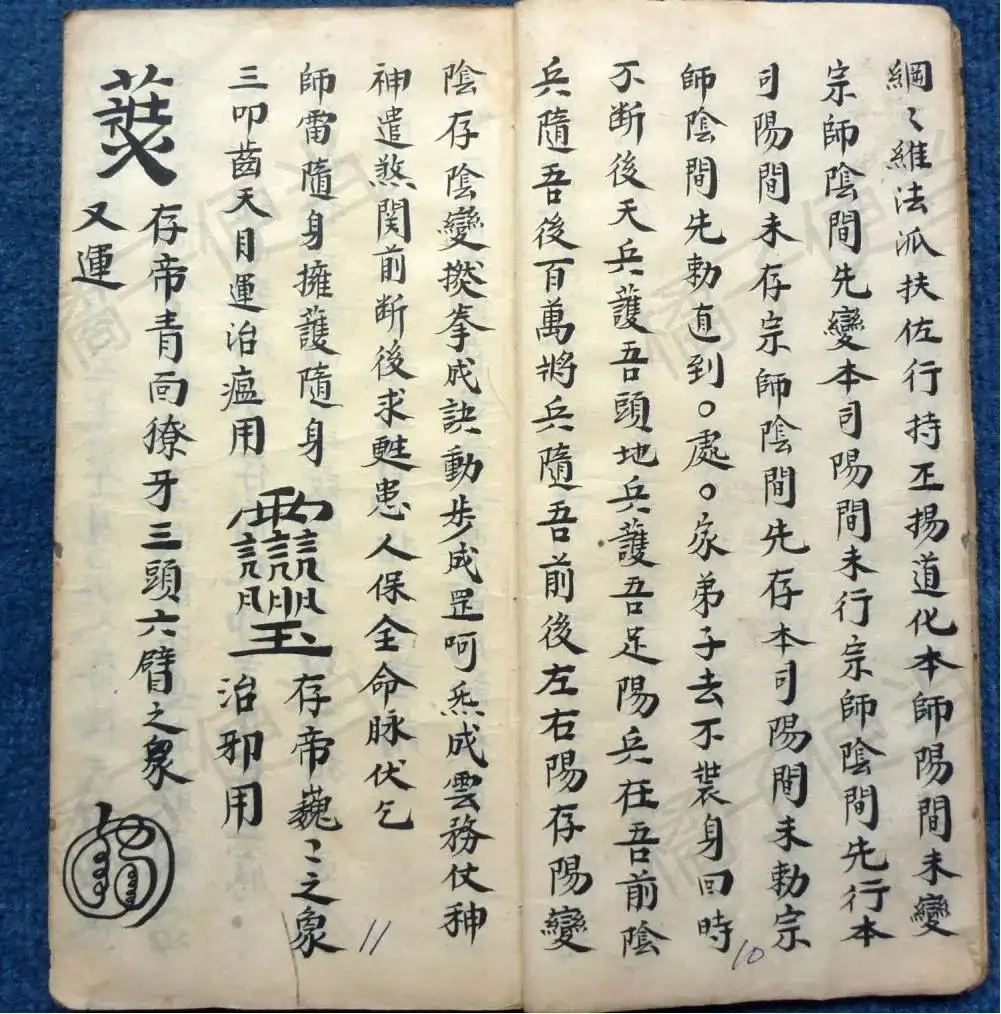 綱〻維法派扶佐行持正揚道化本師陽間未變
宗師陰間先變本司陽間未行宗師陰間先行本
司陽間未存宗師陰間先存本司陽間未勅宗
師陰間先勅直到○處○家弟子去不裝身回時
不断後天兵護吾頭地兵護吾足陽兵在吾前陰
兵隨吾後百萬將兵隨吾前後左右陽存陽變
10
陰存陰變撚拳成訣動步成罡呵炁成雲務仗神
神遣煞関前断後求甦患人保全命脉伏乞
師雷隨身擁護隨身
三叩齒天目運治瘟用
存帝巍〻之象
治邪用
11
存帝青面獠牙三頭六臂之象
又運